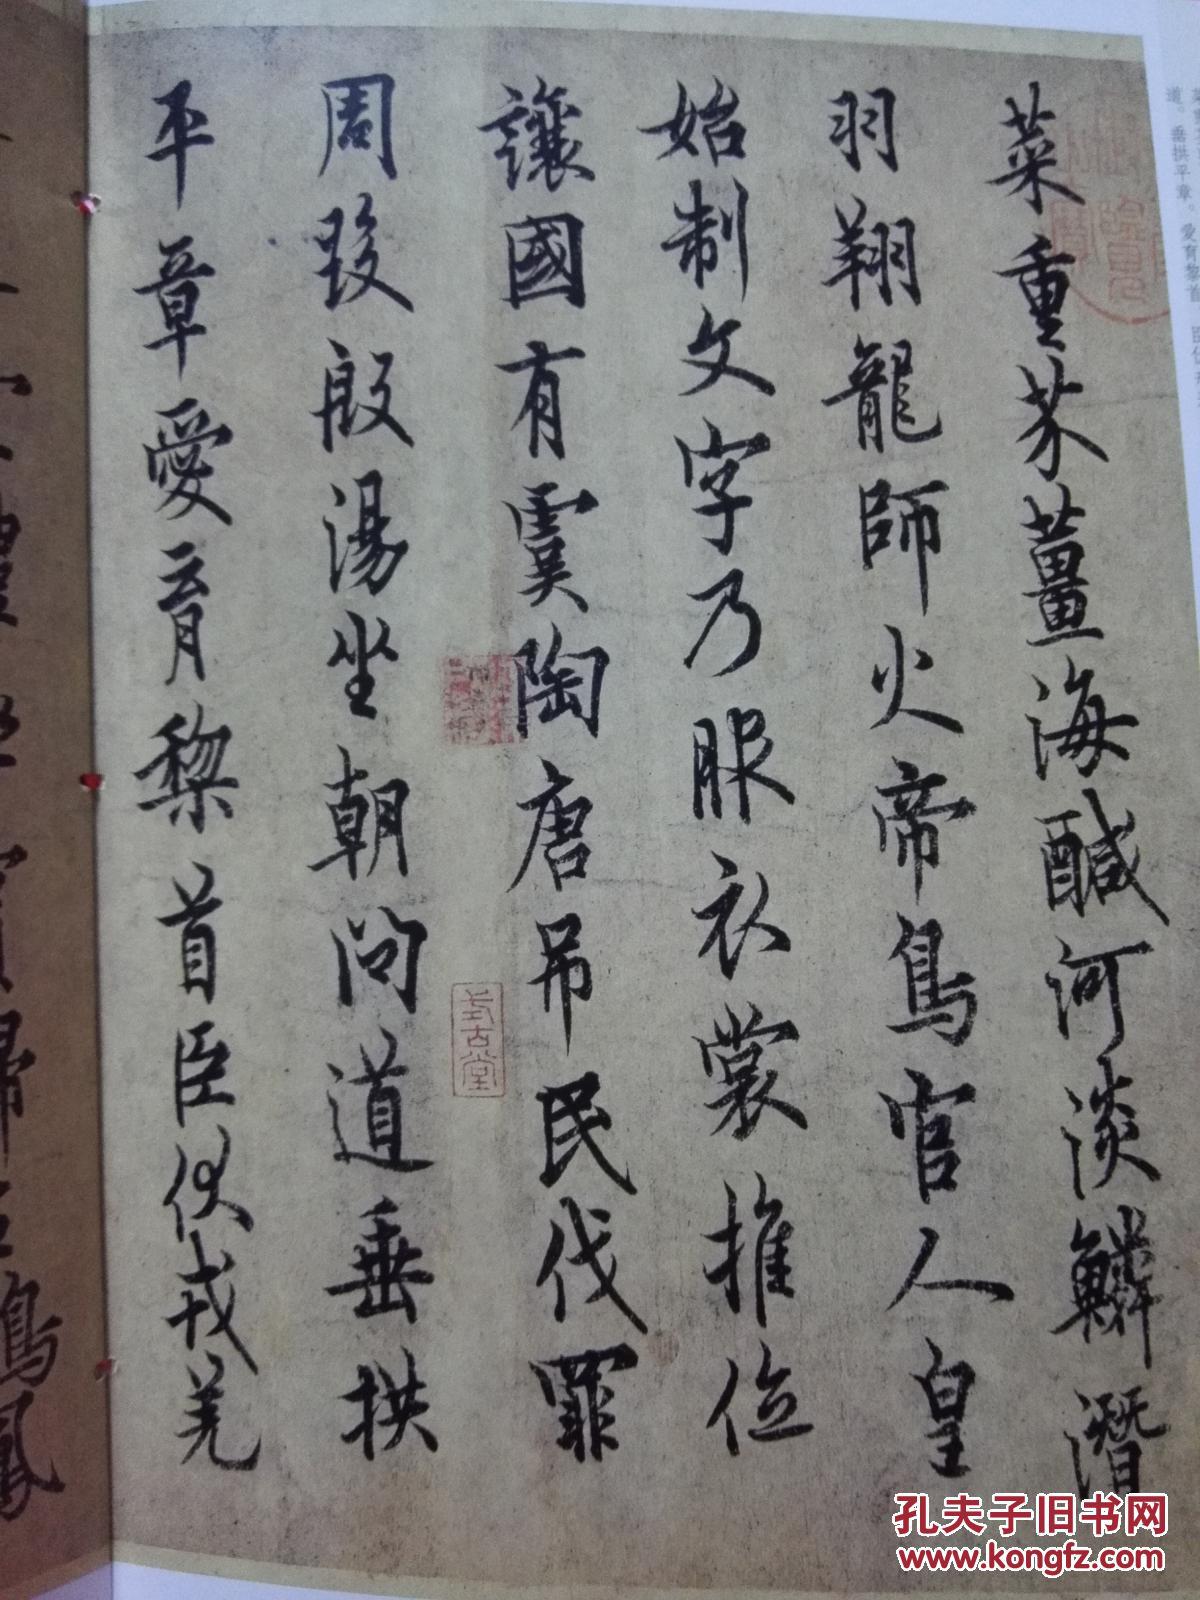 菜重芥薑海醎河淡鱗潛
羽翔龍師火帝鳥官人皇
始制文字乃服衣裳推位
讓國有虞陶唐吊民伐罪
周發殷湯坐朝問道垂拱
平章愛育黎首臣伏戎羌
鳴鳳
式古堂
道。垂拱平章。愛育黎首
孔夫子旧书网
www.kongfz.com